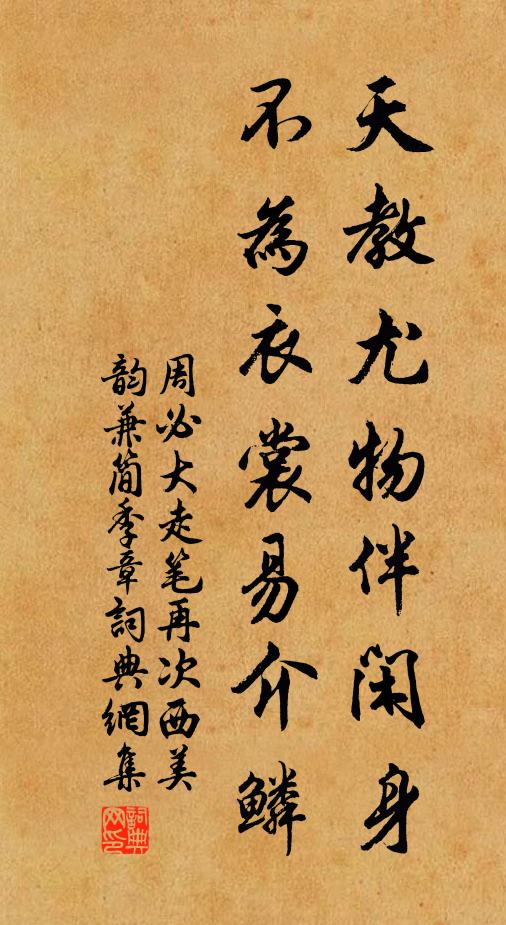 天教尤物伴閑身
不為衣裳易介鱗
周必大走笔再次西美
韵兼简季章詞典網集
詞典
网印